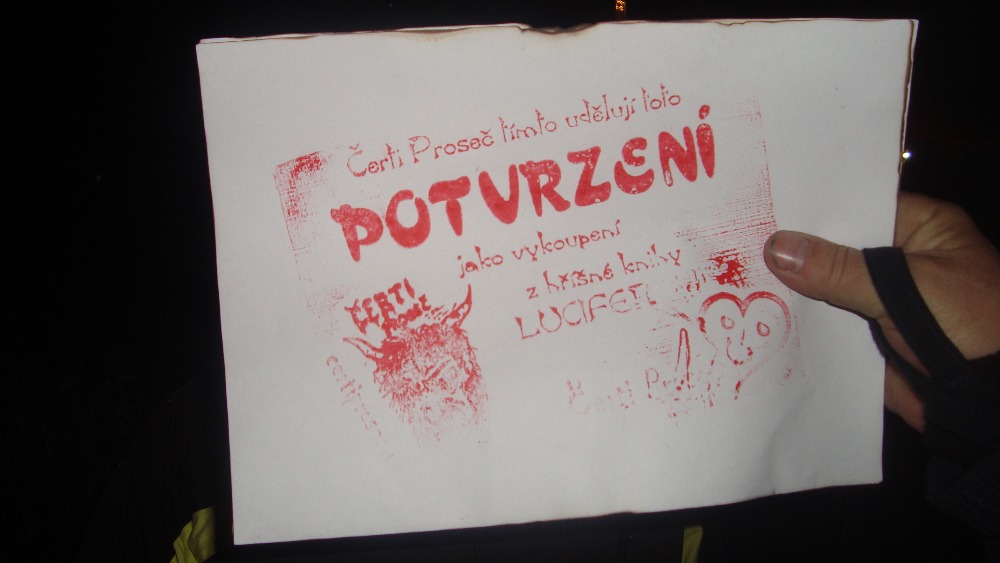 Čerti Proseč tímto udělují toto
POTVRZENÍ
jako vykoupení
z hříšné knihy
LUCIFER
ČERTI